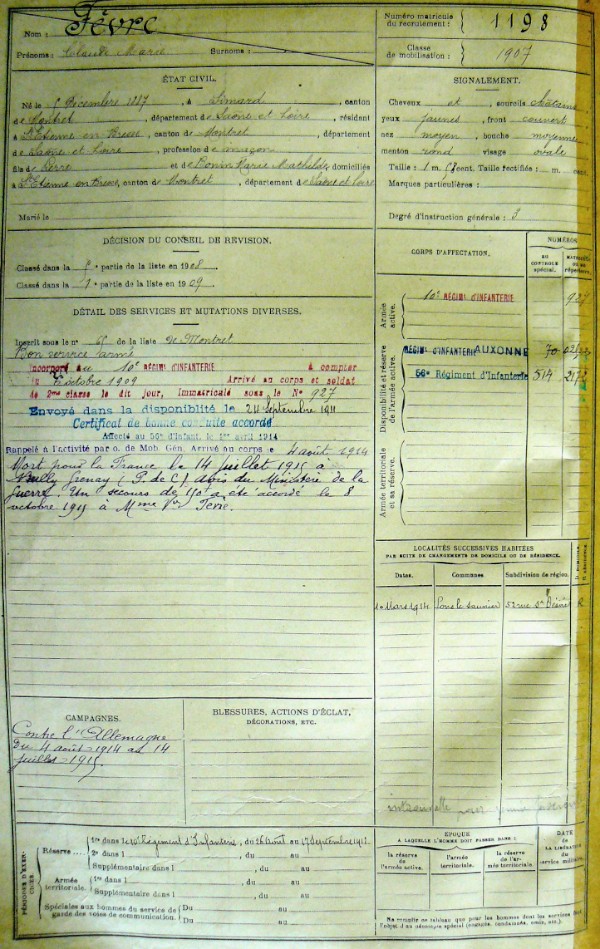 Nom : Fèvre
Prénoms : Claude Marie Surnoms :
Numéro matricule du recrutement : 1198
Classe de mobilisation : 1907
ÉTAT CIVIL.
Né le 5 Décembre 1887, à Simard, canton
de Montret, département de Saône et Loire, résidant
à St Etienne en Bresse, canton de Montret, département
de Saône et Loire, profession de maçon
fils de Pierre et de Bonin Marie Mathilde, domiciliés
à St Etienne en Bresse, canton de Montret, département de Saône et Loire
Marié le
SIGNALEMENT.
Cheveux et sourcils châtains
yeux jaunes, front couvert
nez moyen, bouche moyenne
menton rond visage ovale
Taille : 1 m. cent. Taille rectifiée : m. cent.
Marques particulières :
Degré d'instruction générale : 3
DÉCISION DU CONSEIL DE REVISION.
Classé dans la 5e partie de la liste en 1908
Classé dans la 1e partie de la liste en 1909
DÉTAIL DES SERVICES ET MUTATIONS DIVERSES.
Inscrit sous le n° de la liste de Montret
Bon service armé
Incorporé au 10e RÉGIMt D'INFANTERIE à compter
du octobre 1909 Arrivé au corps et soldat
de 2me classe le dit jour, Immatriculé sous le No 927
Envoyé dans la disponibilité le 24 Septembre 1911
Certificat de bonne conduite accordé
Affecté au 56e d'Infant. le 1er avril 1914
Rappelé à l'activité par o. de Mob. Gén. Arrivé au corps le 4 août 1914
Mort pour la France le 14 juillet 1915 à
Grenay (P. de C.) Avis du Ministère de la
Guerre. Un secours de 150f a été accordé le 8
octobre 1915 à Mme Vve Fèvre.
CORPS D'AFFECTATION.
NUMÉROS
AU CONTRÔLE spécial.
Armée active.
10e RÉGIMt D'INFANTERIE 927
Disponibilité et réserve de l'armée active.
RÉGIMt D'INFANTERIE AUXONNE 70
56e Régiment d'Infanterie 514
Armée territoriale et sa réserve.
LOCALITÉS SUCCESSIVES HABITÉES
PAR SUITE DE CHANGEMENTS DE DOMICILE OU DE RÉSIDENCE.
Dates. Communes Subdivision de région.
D. DOMICILE. R. RÉSIDENCE.
Mars 1914 Lons le Saunier 52 rue St Désiré R
CAMPAGNES.
Contre l'Allemagne
du 4 août 1914 au 14
juillet 1915.
BLESSURES, ACTIONS D'ÉCLAT,
DÉCORATIONS, ETC.
PÉRIODES D'EXERCICES
Réserve 1re dans le 10e Régiment d'Infanterie, du 26 août au 17 septembre 1913.
2e dans l , du au
Supplémentaire dans l , du au
Armée territoriale. 1re dans l , du au
Supplémentaire dans l , du au
Spéciales aux hommes du service de garde des voies de communication. Du au
Du au
ÉPOQUE
A LAQUELLE L'HOMME DOIT PASSER DANS :
la réserve de l'armée active.
l'armée territoriale.
la réserve de l'armée territoriale.
DATE DE LA LIBÉRATION du service militaire.